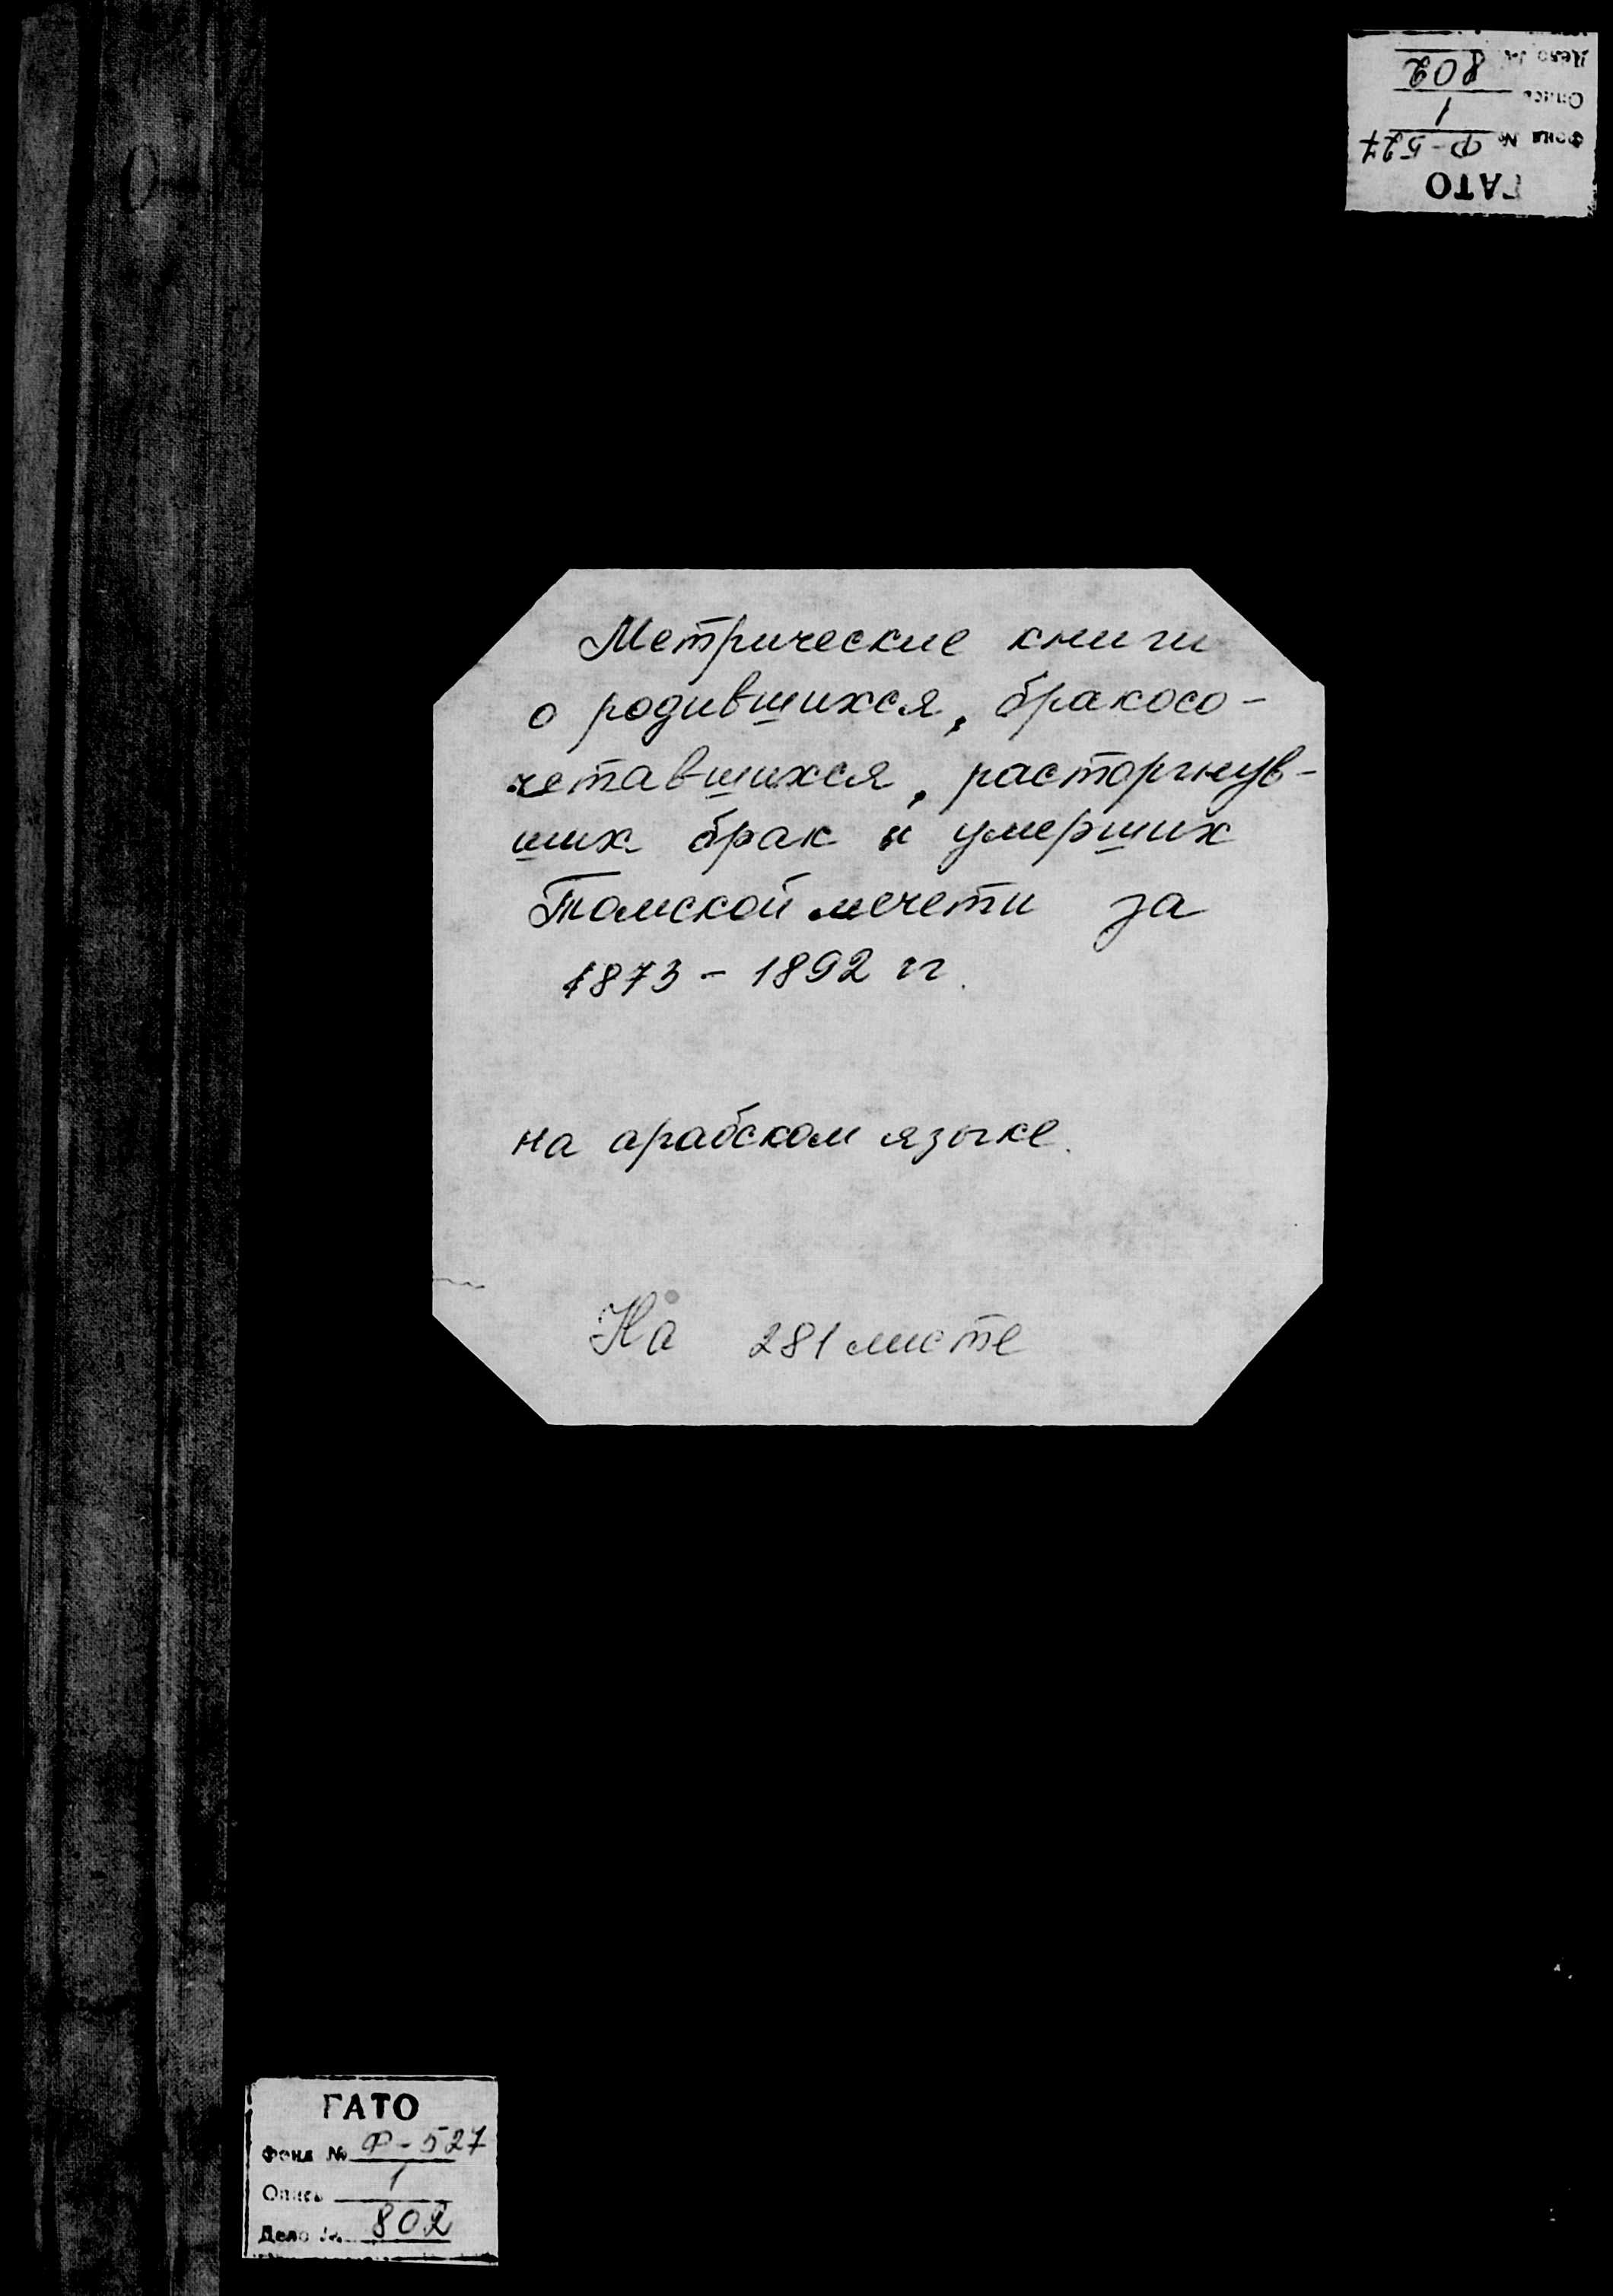 ГАТО
Фонд № Ф-527
Опись 1
Дело № 802
Метрические книги
о родившихся, бракосо-
четавшихся, расторгнув-
ших брак и умерших
Томской мечети за
1873 - 1892 гг.
на арабском языке.
На 281 листе
ГАТО
Фонд № Ф-527
Опись 1
Дело № 802